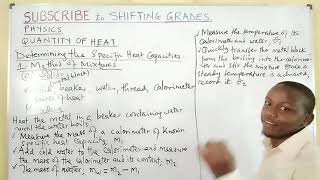 SUBSCRIBE to SHIFTING GRADES.
PHYSICS
QUANTITY OF HEAT
Determining the Specific Heat Capacities
Method of Mixtures
Solid (metal block)
beaker, water, thread, Calorimeter
source of heat
Heat the metal in a beaker containing water
until the water boils
✓ Measure the mass of a calorimeter of known
specific heat capacity, M₁
✓ Add cold water to the calorimeter and measure
the mass of the calorimeter and its content, M₂
✓ The mass of water, Mw = M₂ - M₁
✓ Measure the temperature of the
calorimeter and water, θ₁
✓ Quickly transfer the metal block
from the boiling into the calorime-
ter and stir the mixture. Once a
steady temperature is achieved,
record it θ₂